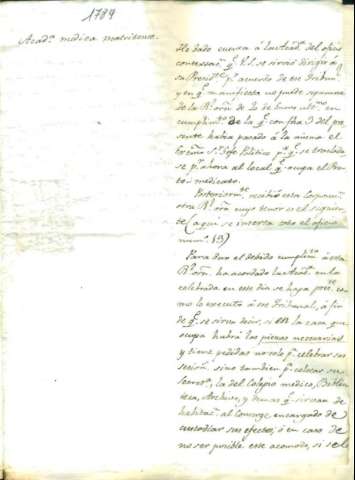 1789
Acad.ª medica matritense.
He dado cuenta á la Acad.ª del oficio
contestac.n q.e V.S. se sirvió dirigir á
su Presid.te p.r acuerdo de ese Tribun.l
y en q.e manifiesta no puede separarse
de la R.l orn de 20 de Enero ult.mo en
cumplim.to de la q.e con fha 3 del pre
sente habia pasado á la misma el
Exmo S.r Gefe Politico p.a q.e se traslada
se p.r ahora al local q.e ocupa el Pro
to-medicato.
Posteriorm.te recibió esta Corporac.n
otra R.l orn cuyo tenor es el siguien
te (aqui se inserta todo el oficio
num.o 13)
Para dar el debido cumplim.to á esta
R.l orn ha acordado la Acad.ª en la
celebrada en este dia se haga pres.te co
mo lo executo á ese Tribunal, á fin
de q.e se sirva decir, si en la casa que
ocupa habrá las piezas necesarias
y tiene pedidas no solo p.a celebrar sus
sesion.s sino tambien p.a colocar su
Secret.a, la del Colegio medico, Biblio
teca, Archivo, y demas q.e sirvan de
habitac.n al Conserge, encargado de
custodiar sus efectos; ó en caso de
no ser posible este acomodo, si se le